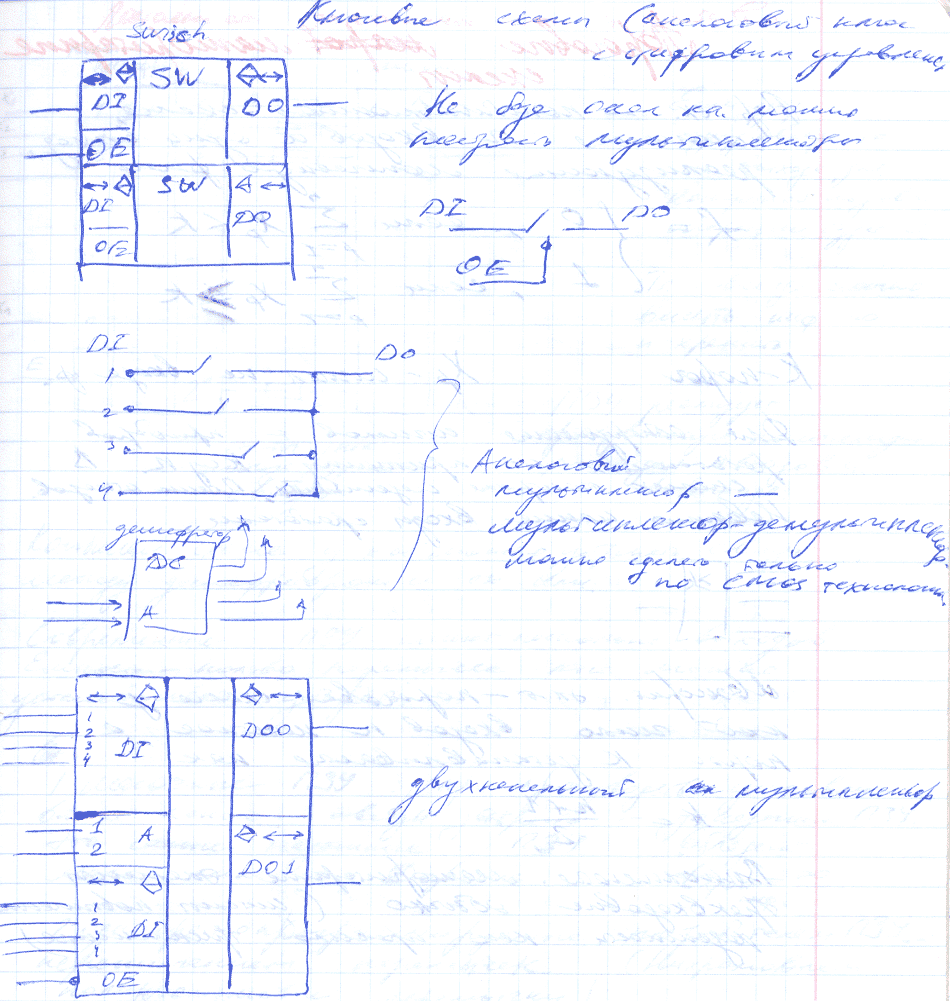 Ключевые схемы (аналоговый ключ
с цифровым управлением
Switch
SW
DI
DO
OE
На базе анал. кл. можно
построить мультиплексоры
SW
DI
DO
OE
DI DO
OE
DI
DO
1
2
3
4
Аналоговый
мультиплексор —
мультиплексор-демультиплексор
можно сделать только
по CMOS технологии
дешифратор
DC
A
1
2
3
4
DI
DO0
двухканальный ан мультиплексор
1
2
A
DO1
1
2
3
4
DI
OE